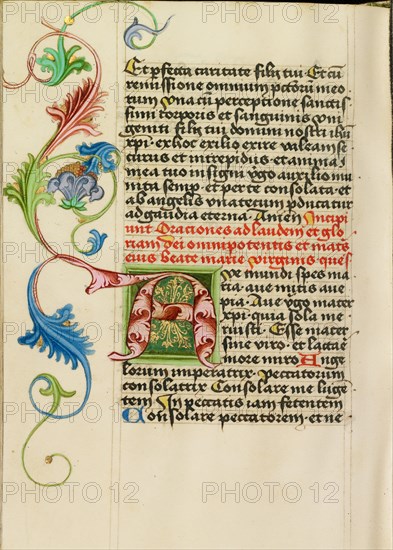 Et pfecta caritate filij tui. Et cū
remissione omnium pctōrum meo
rum vna cū perceptione sanctis
simi corporis et sanguinis vni
geniti filij tui domini nostri ihū
xpi. ex hoc exilio exire valeam se
curus et intrepidus. et anima
mea tuo insigni vgo auxilio mu
nita semp. et per te consolata. et
ab angelis vna tecum pducatur
ad gaudia eterna. Amen Incipi
unt Orationes ad laudem et glo
riam dei omnipotentis et matris
eius beate marie virginis ques
Ave mundi spes ma
ria. aue mitis aue
pia. Aue vgo mater
xpi. quia sola me
ruisti. Esse mater
sine viro. et lactāe
more miro Ange
lorum imperatrix. peccatorum
consolatrix Consolare me luge
tem In peccatis iam fetentem
Consolare peccatorem. et ne
PHOTO 12